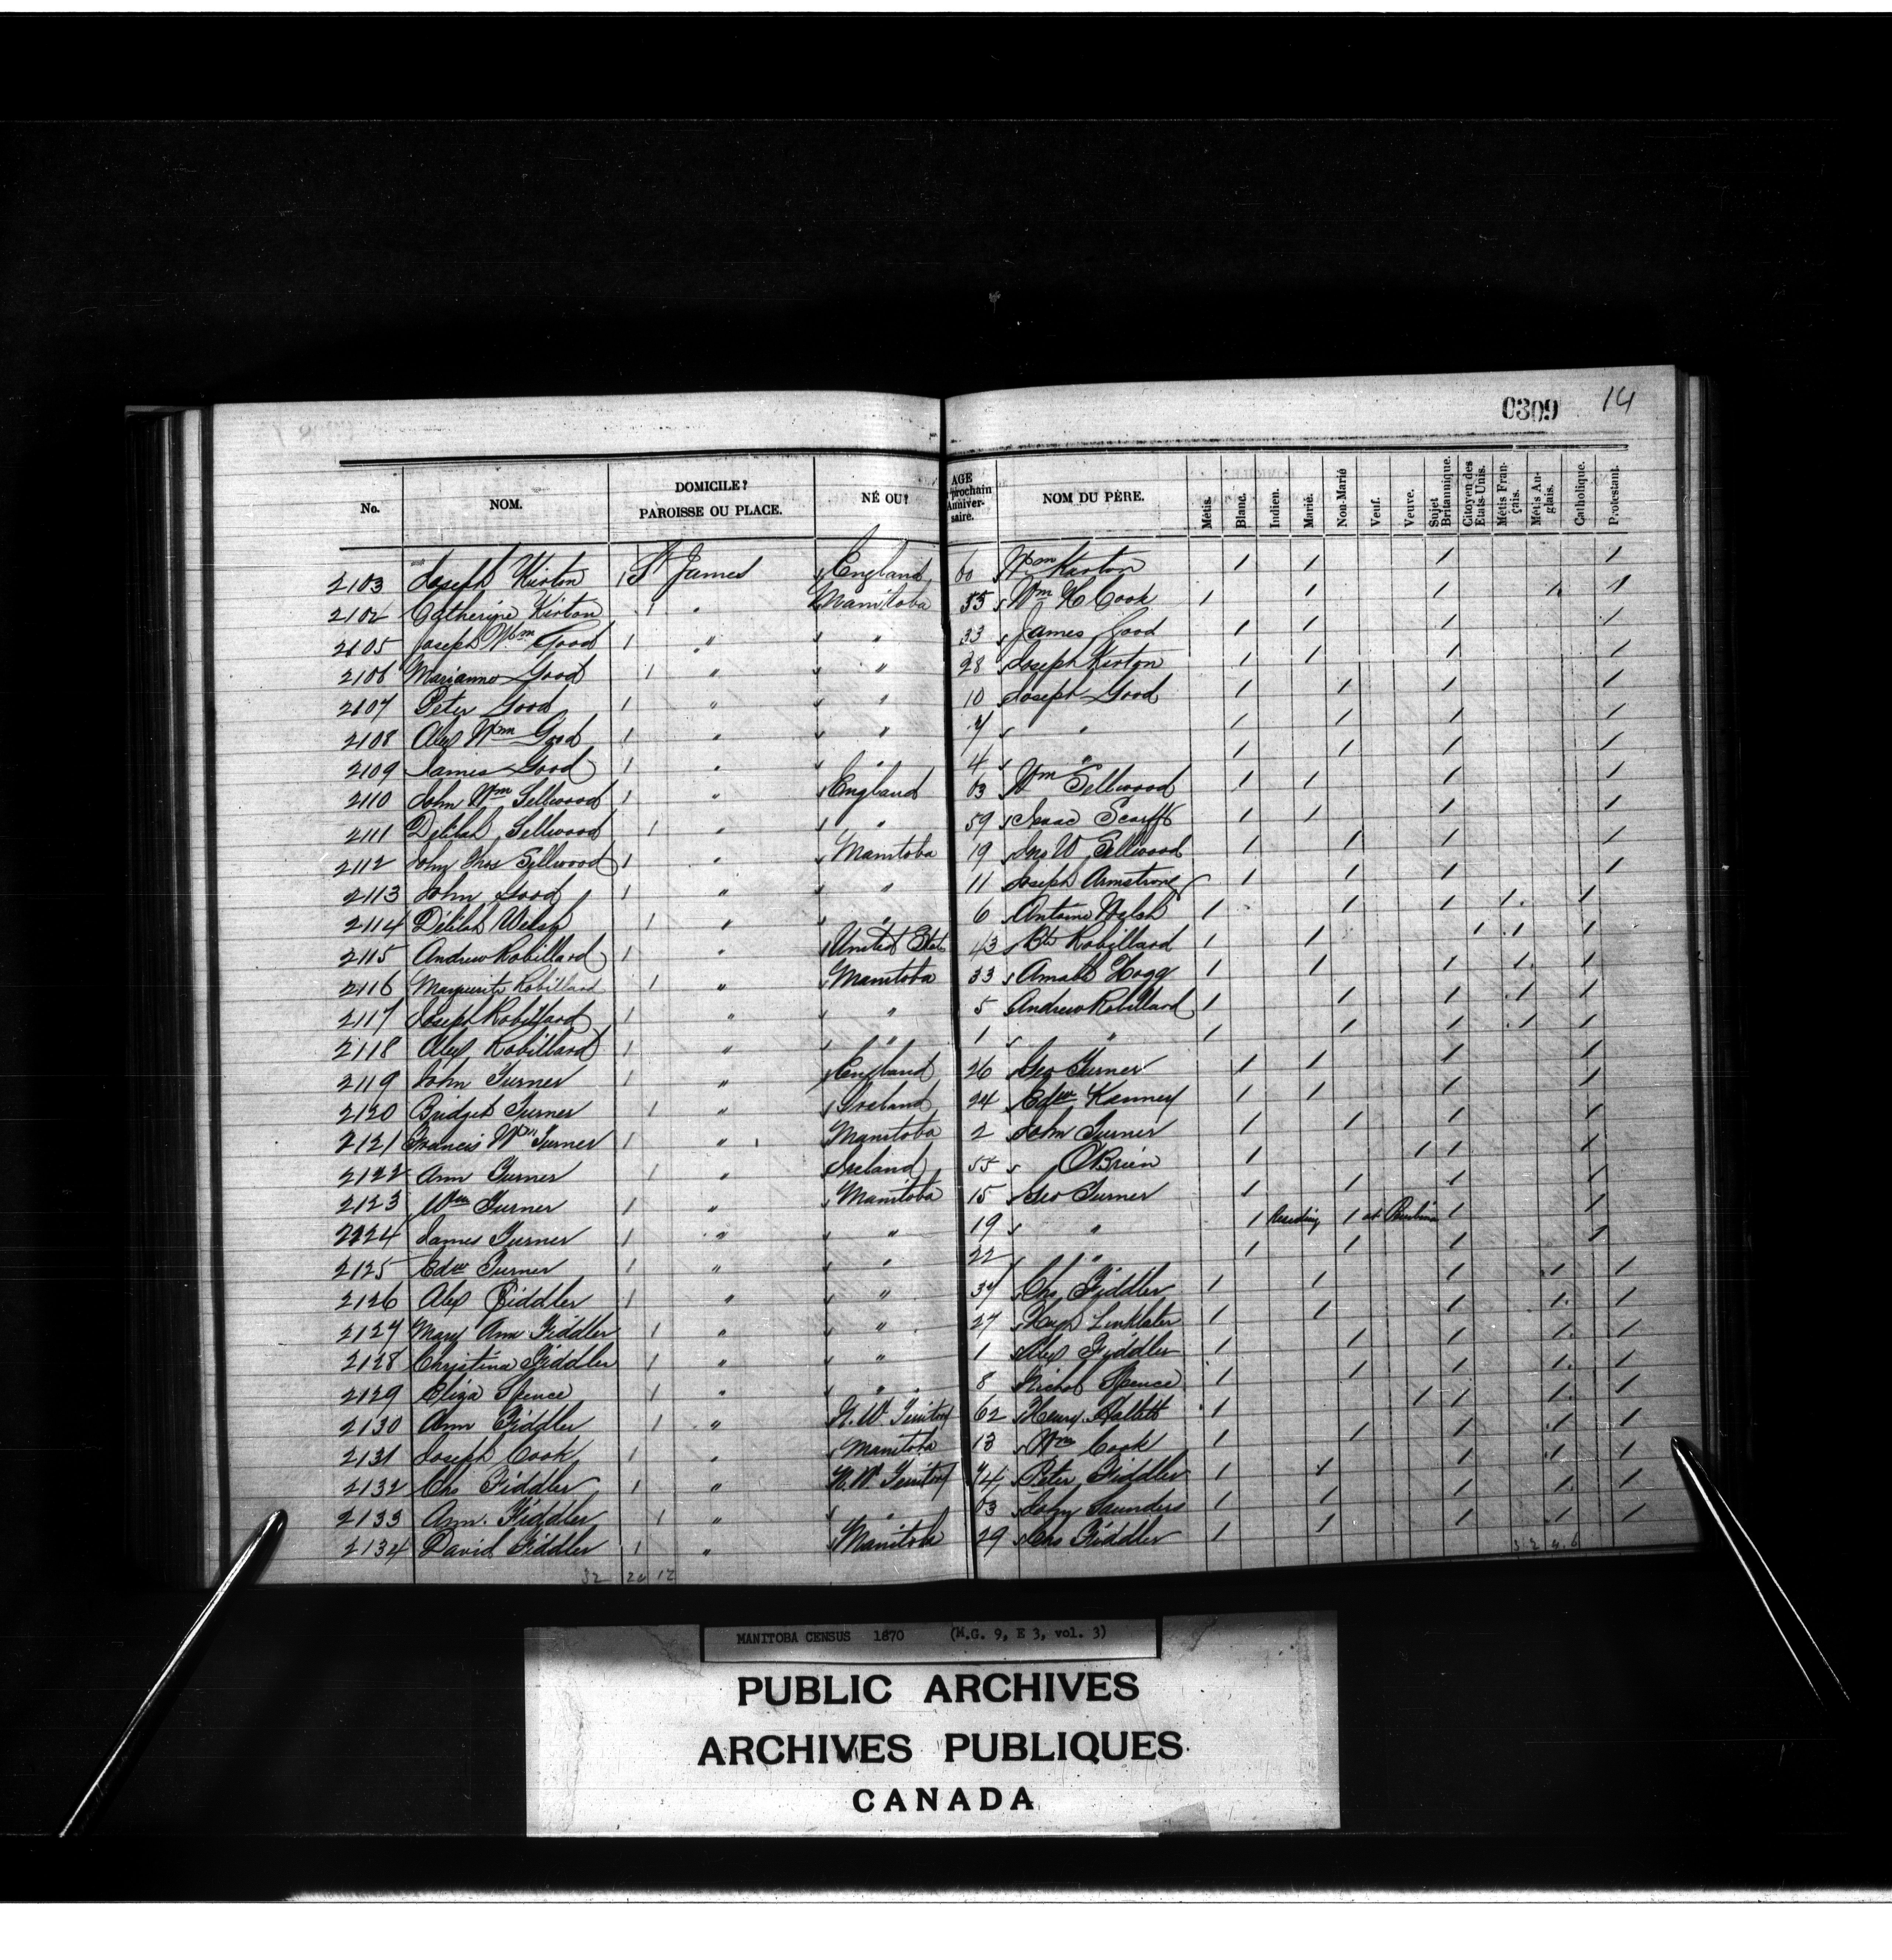 0309 14
No. NOM. DOMICILE? PAROISSE OU PLACE. NÉ OU? AGE prochain Anniver-saire. NOM DU PÈRE. Métis. Blanc. Indien. Marié. Non-Marié Veuf. Veuve. Sujet Britannique. Citoyen des Etats-Unis. Métis Fran-çais. Métis An-glais. Catholique. Protestant.
2103 Joseph Kirton 1 St James England 60 Wm Karton 1 1 1 1
2104 Catherine Kirton 1 " Manitoba 55 Wm H Cook 1 1 1 1 1
2105 Joseph Wm Good 1 " " 33 James Good 1 1 1 1
2106 Marianne Good 1 " " 28 Joseph Kirton 1 1 1 1
2107 Peter Good 1 " " 10 Joseph Good 1 1 1 1
2108 Alex Wm Good 1 " " 7 " 1 1 1 1
2109 James Good 1 " " 4 " 1 1 1 1
2110 John Wm Sellwood 1 " England 63 Wm Sellwood 1 1 1 1
2111 Delilah Sellwood 1 " " 59 Isaac Scarff 1 1 1 1
2112 John Thos Sellwood 1 " Manitoba 19 Jno W Sellwood 1 1 1 1
2113 John Good 1 " " 11 Joseph Armstrong 1 1 1 1
2114 Delilah Welsh 1 " " 6 Antoine Welsh 1 1 1 1 1
2115 Andrew Robillard 1 " United States 43 Bte Robillard 1 1 1 1 1
2116 Marguerite Robillard 1 " Manitoba 33 Amable Hogg 1 1 1 1 1
2117 Joseph Robillard 1 " " 5 Andrew Robillard 1 1 1 1 1
2118 Alex Robillard 1 " " 1 " 1 1 1 1 1
2119 John Turner 1 " England 26 Geo Turner 1 1 1 1
2120 Bridget Turner 1 " Ireland 24 Edw Kanney 1 1 1 1
2121 Francis Wm Turner 1 " Manitoba 2 John Turner 1 1 1 1
2122 Ann Turner 1 " Ireland 55 O'Brien 1 1 1 1
2123 Wm Turner 1 " Manitoba 15 Geo Turner 1 1 1 1
2124 James Turner 1 " " 19 " 1 Residing 1 at Pembina 1 1
2125 Edw Turner 1 " " 22 " 1 1 1 1
2126 Alex Fiddler 1 " " 37 Chs Fiddler 1 1 1 1 1
2127 Mary Ann Fiddler 1 " " 27 Hugh Linklater 1 1 1 1 1
2128 Christina Fiddler 1 " " 1 Alex Fiddler 1 1 1 1 1
2129 Eliza Spence 1 " " 8 Nichol Spence 1 1 1 1 1
2130 Ann Fiddler 1 " N. W. Territory 62 Henry Hallett 1 1 1 1 1
2131 Joseph Cook 1 " Manitoba 13 Wm Cook 1 1 1 1 1
2132 Chs Fiddler 1 " N. W. Territory 74 Peter Fiddler 1 1 1 1 1
2133 Ann. Fiddler 1 " " 63 John Saunders 1 1 1 1 1
2134 David Fiddler 1 " Manitoba 29 Chs Fiddler 1 1 1 1 1
32 20 12
MANITOBA CENSUS 1870 (M.G. 9, E 3, vol. 3)
PUBLIC ARCHIVES
ARCHIVES PUBLIQUES
CANADA